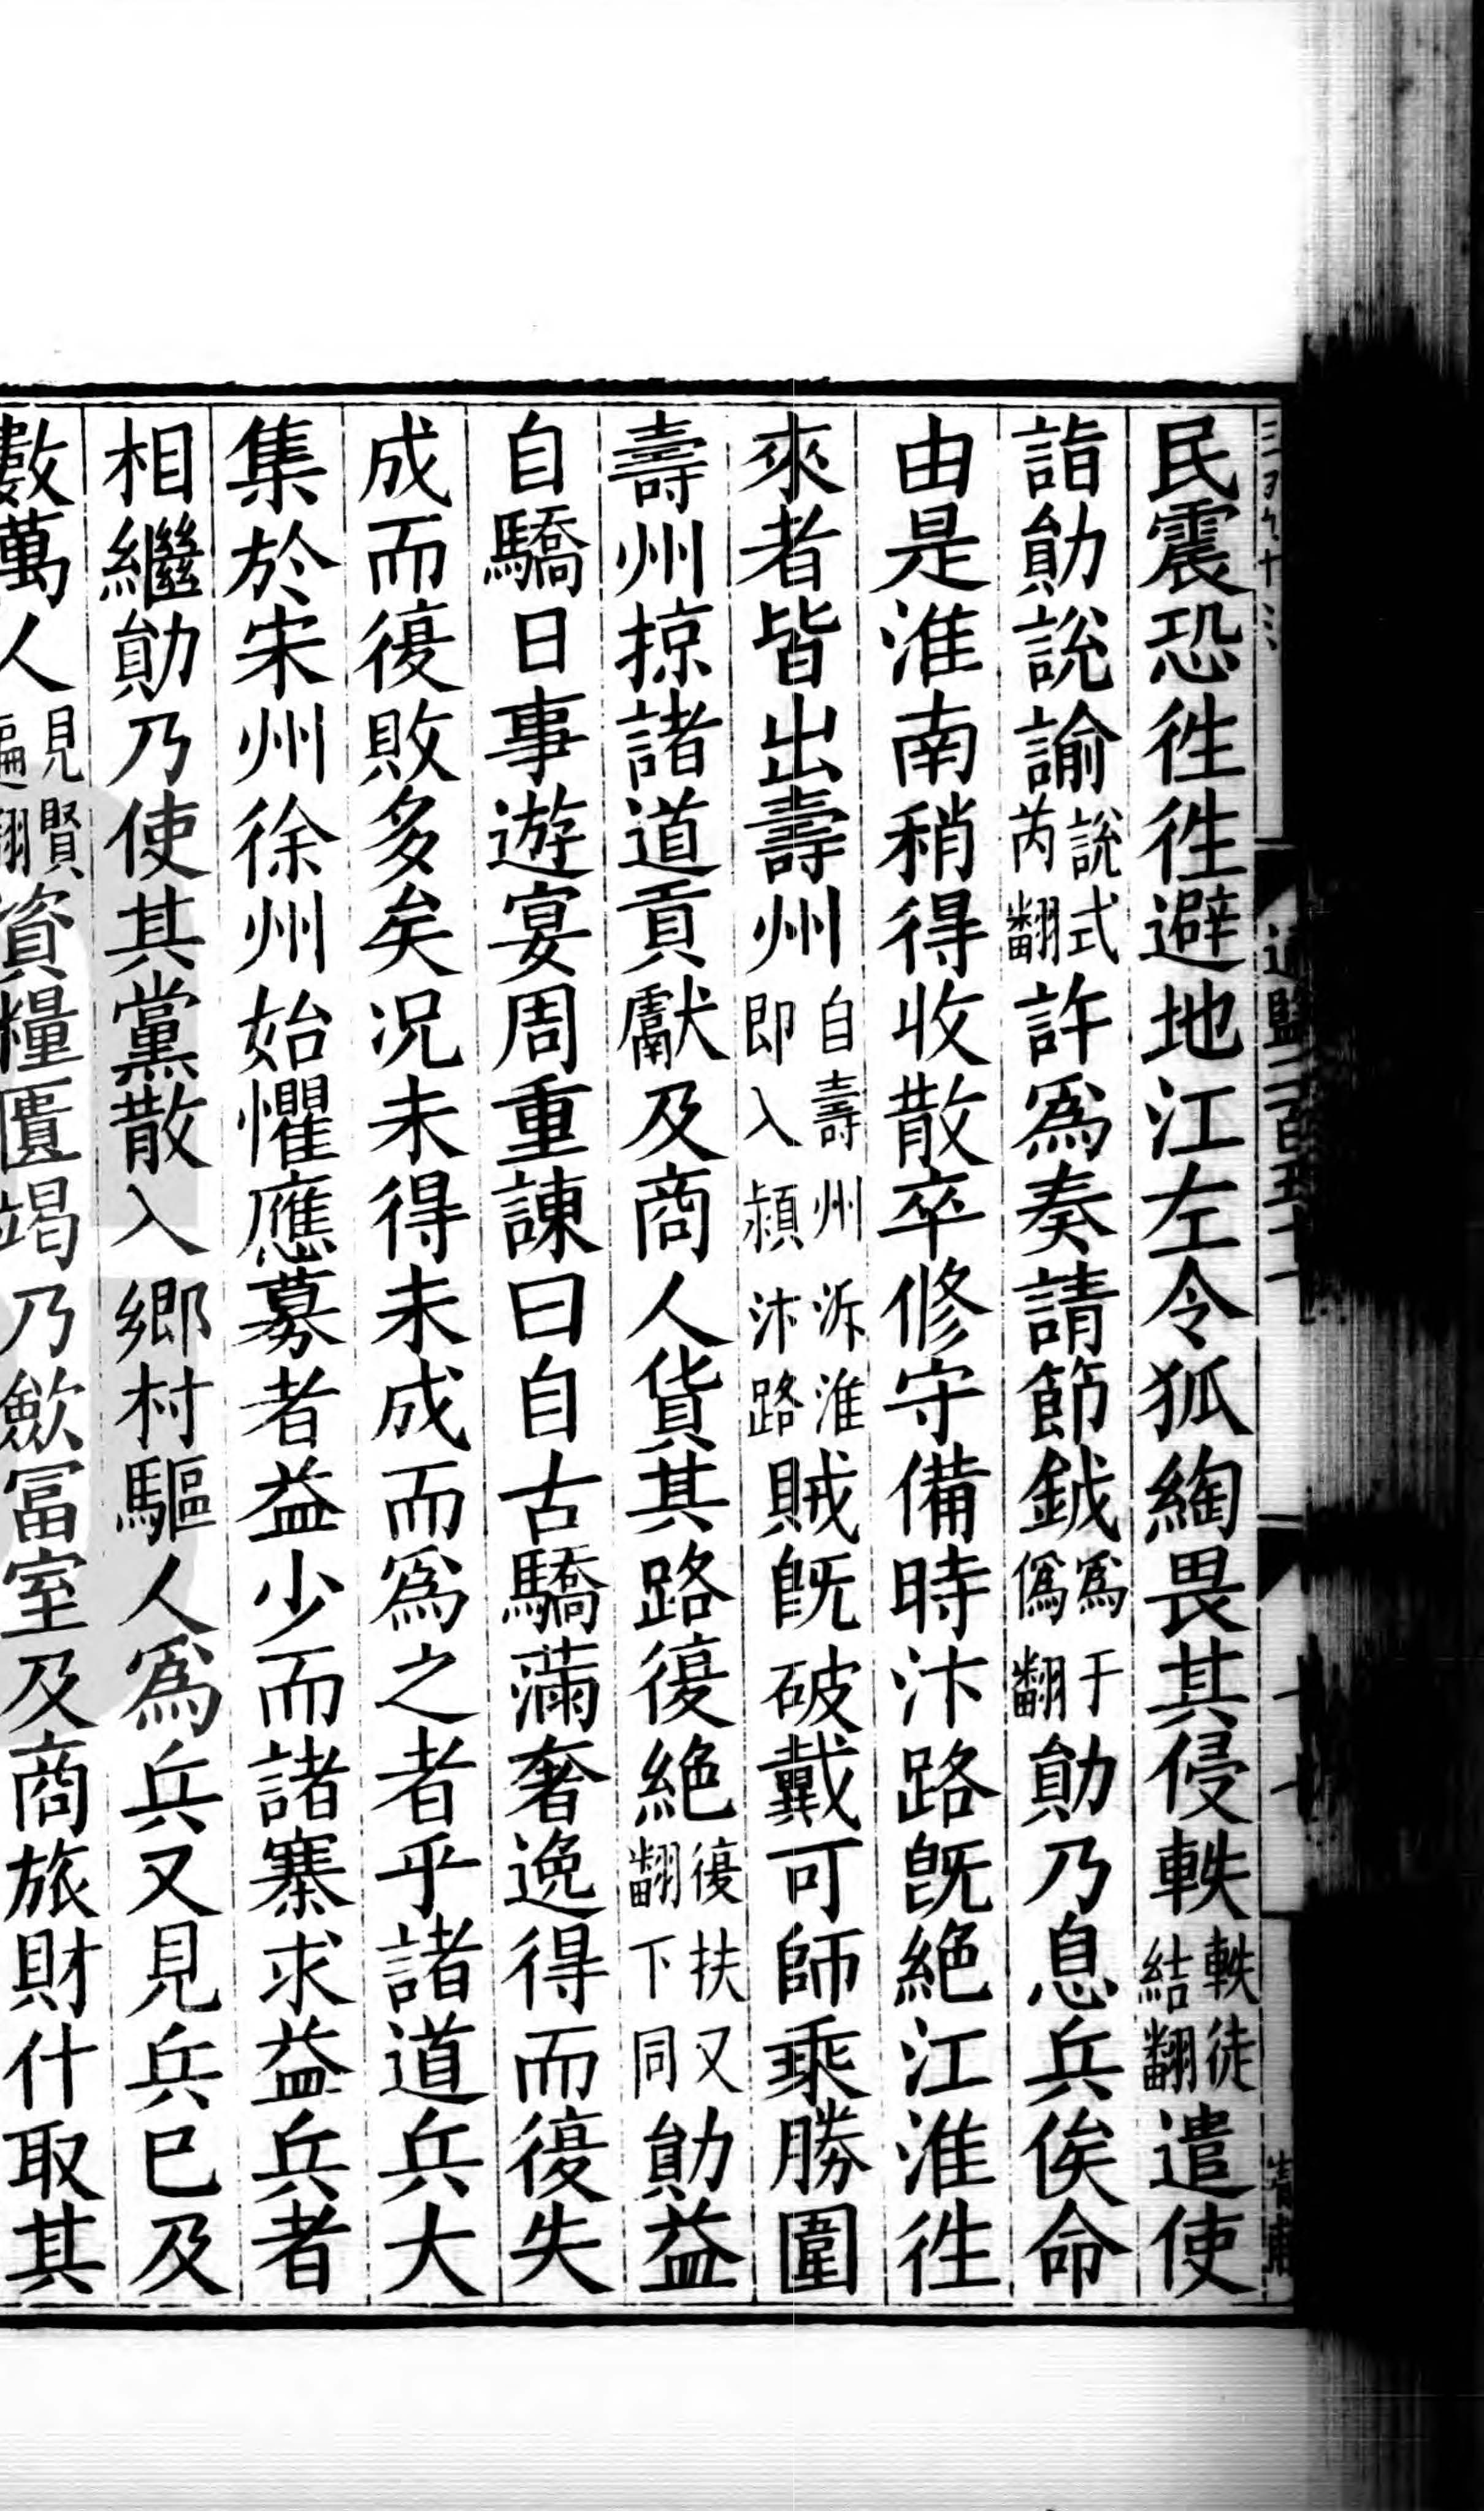 通鑑二百五十一
民震恐徃徃避地江左令狐綯畏其侵軼軼徒結翻遣使
詣勛說諭說式芮翻許爲奏請節鉞爲于僞翻勛乃息兵俟命
由是淮南稍得收散卒修守備時汴路旣絶江淮徃
來者皆出壽州自壽州泝淮即入潁汴路賊旣破戴可師乘勝圍
壽州掠諸道貢獻及商人貨其路復絶復扶又翻下同勛益
自驕日事遊宴周重諫曰自古驕滿奢逸得而復失
成而復敗多矣况未得未成而爲之者乎諸道兵大
集於宋州徐州始懼應募者益少而諸寨求益兵者
相繼勛乃使其黨散入鄉村驅人爲兵又見兵已及
數萬人見賢遍翻資糧匱竭乃歛富室及商旅財什取其